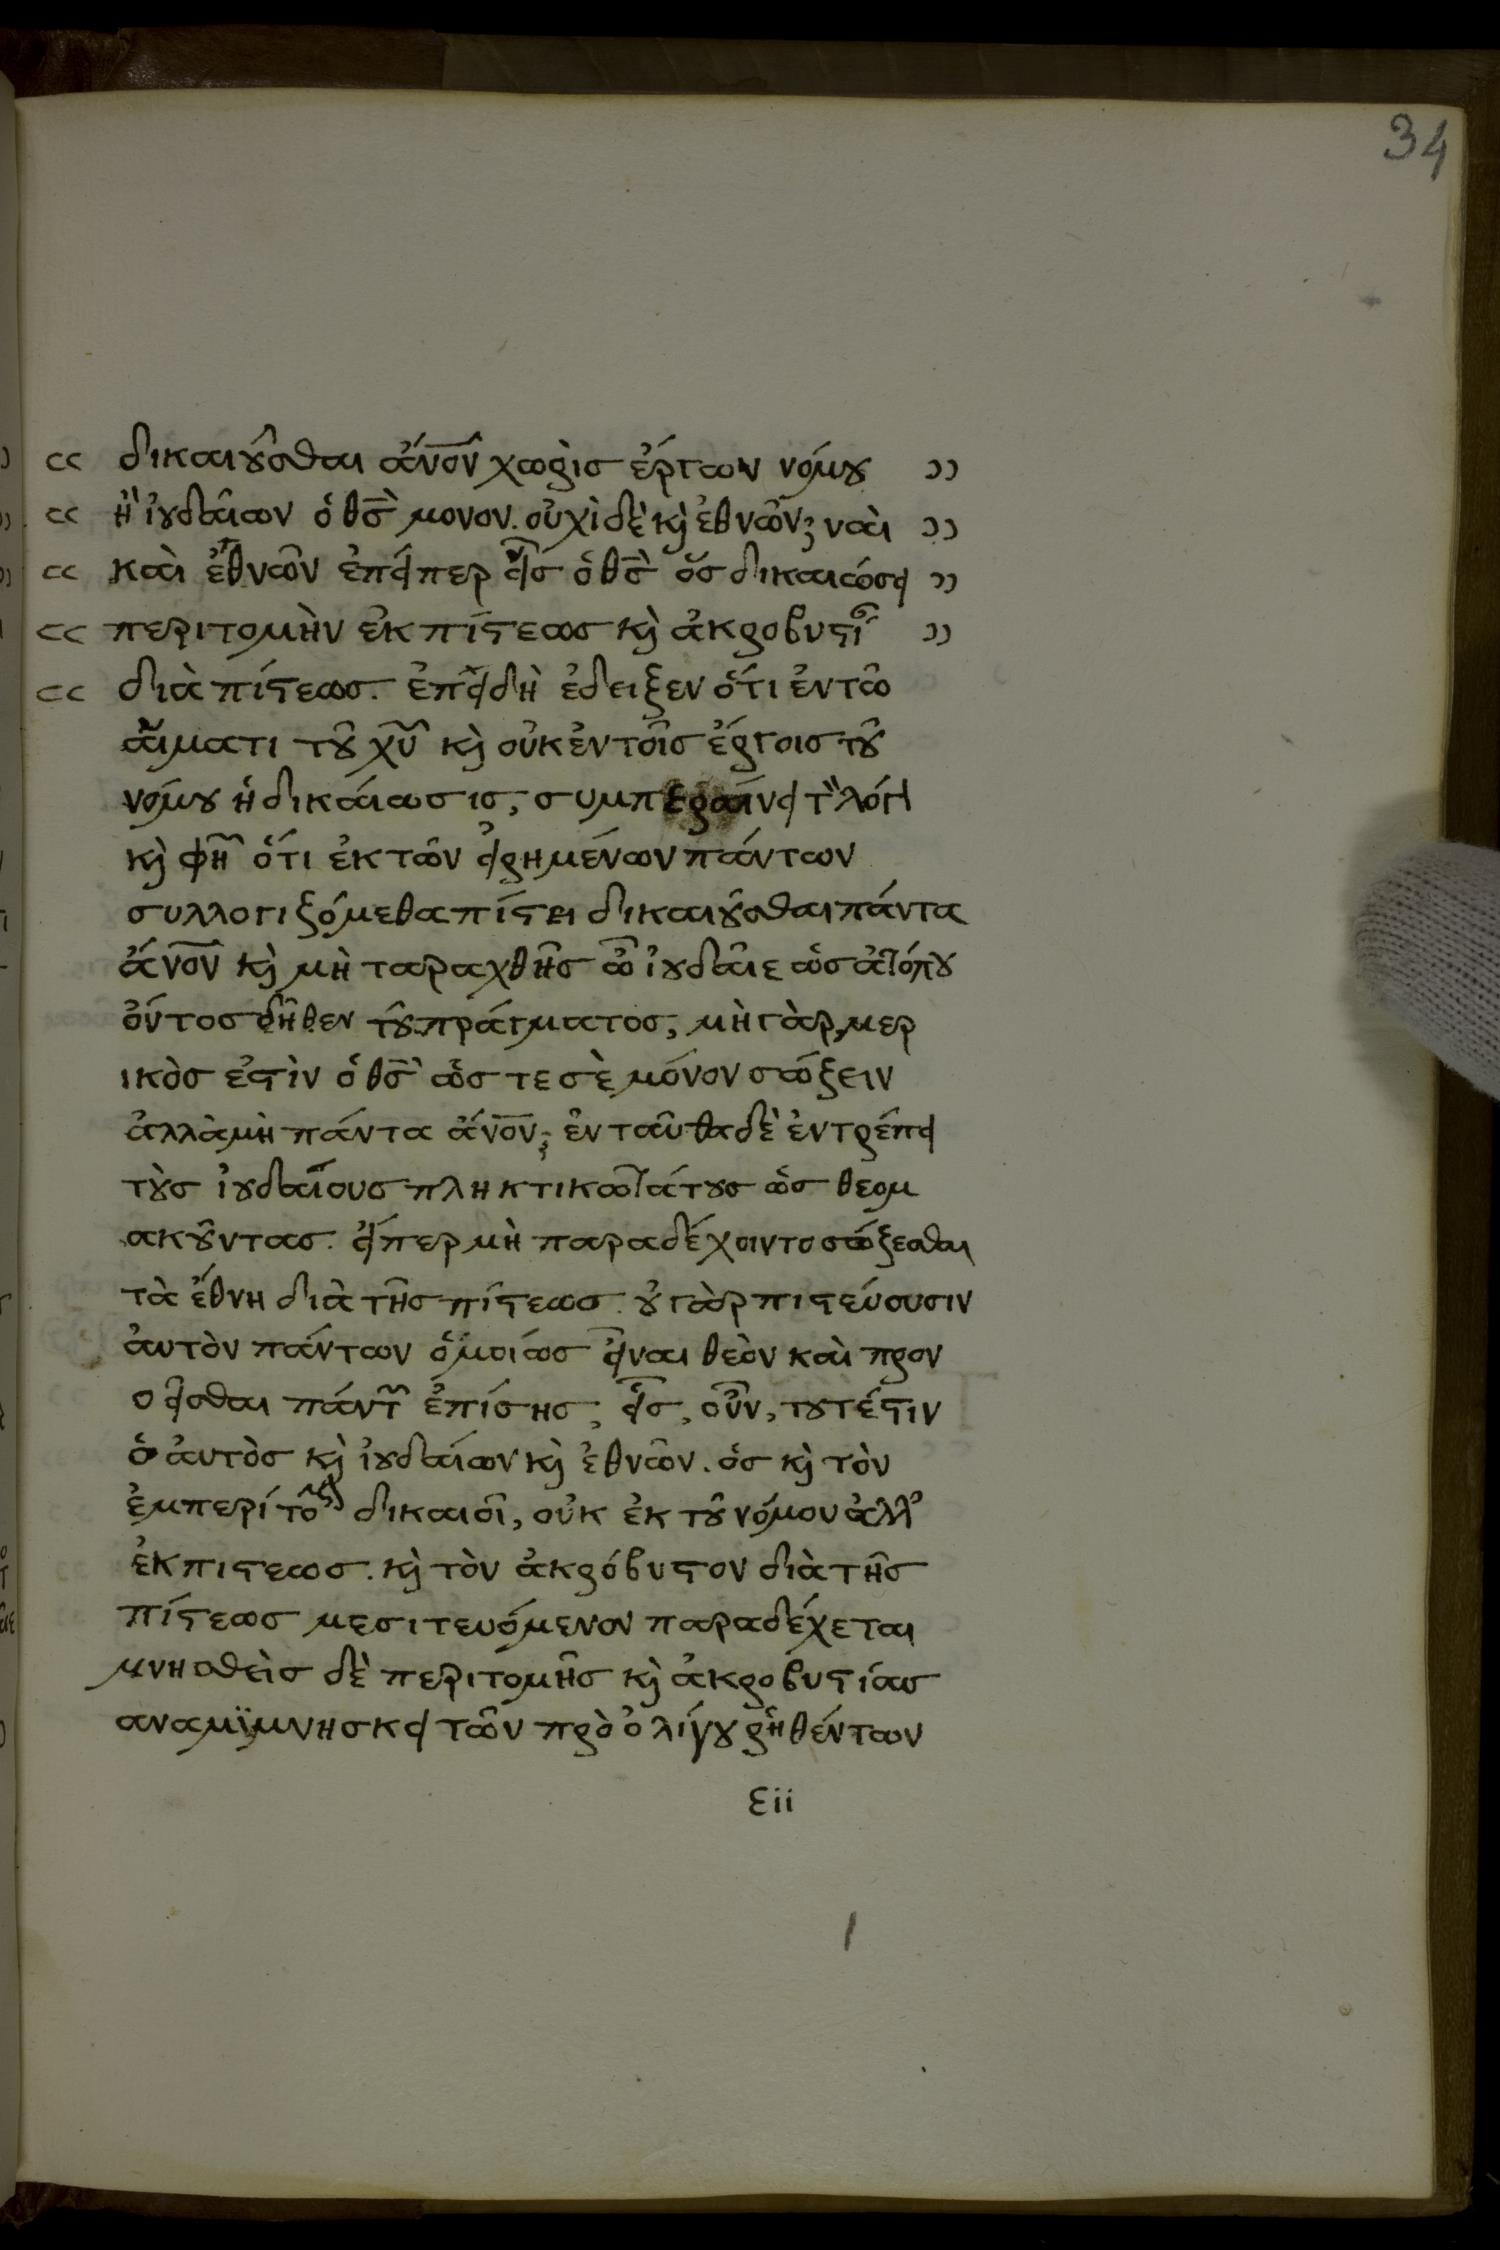 34
δικαιοῦσθαι ἄνον χωρὶς ἔργων νόμου
ἢ ἰουδαίων ὁ θς μονον. οὐχὶ δὲ κὶ ἐθνῶν; ναὶ
καὶ ἐθνῶν ἐπείπερ εἷς ὁ θς ὃς δικαιώσει
περιτομὴν ἐκ πίστεως κὶ ἀκροβυστί
διὰ πίστεως. ἐπειδὴ ἔδειξεν ὅτι ἐν τῶ
αἵματι τοῦ χυ κὶ οὐκ ἐν τοῖς ἔργοις τοῦ
νόμου ἡ δικαίωσις, συμπεραίνει τ λόγ
κὶ φη ὅτι ἐκ τῶν εἰρημένων πάντων
συλλογιζόμεθα πίστει δικαιοῦσθαι πάντα
ἄνον κὶ μὴ ταραχθῆς ὦ ἰουδαῖε ὡς ἀτόπου
ὄντος δῆθεν τοῦ πράγματος, μὴ γὰρ, μερ
ικός ἐστὶν ὁ θς ὥστε σὲ μόνον σώζειν
ἀλλὰ μὴ πάντα ἄνον; ἐνταῦθα δὲ ἐντρέπει
τοὺς ἰουδαίους πληκτικωτάτους ὡς θεομ
ακοῦντας. εἴπερ μὴ παραδέχοιντο σώζεσθαι
τὰ ἔθνη διὰ τῆς πίστεως. οὐ γὰρ πιστεύουσιν
ἀυτὸν πάντων ὁμοίως εἶναι θεὸν καὶ προν
οεῖσθαι πάντ ἐπίσης, εἷς, οὖν, τουτέστιν
ὁ ἀυτὸς κὶ ἰουδαίων κὶ ἐθνῶν. ὃς κὶ τὸν
ἐμπερίτομ δικαιοῖ, οὐκ ἐκ τοῦ νόμου ἀλλ'
ἐκ πιστεως. κὶ τὸν ἀκρόβυστον διὰ τῆς
πίστεως μεσιτευόμενον παραδέχεται
μνησθεὶς δὲ περιτομῆς κὶ ἀκροβυστίας
αναμϊμνησκει τῶν πρὸ ὀλίγου ῥηθέντων
εii